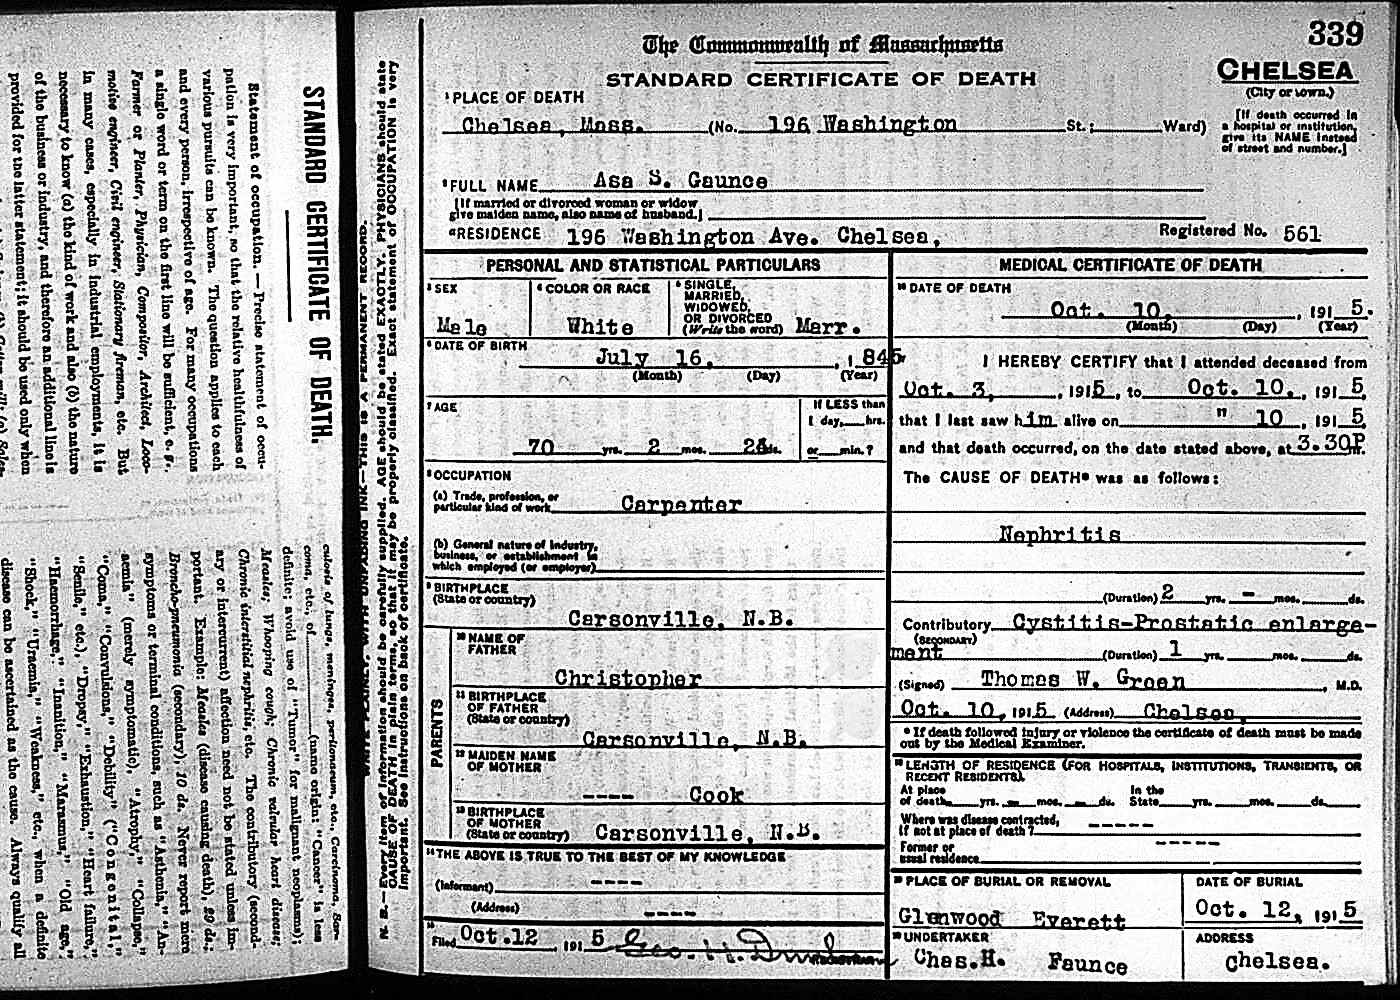 339
The Commonwealth of Massachusetts
STANDARD CERTIFICATE OF DEATH
CHELSEA
(City or town.)
[If death occurred in
a hospital or institution,
give its NAME instead
of street and number.]
1 PLACE OF DEATH
Chelsea, Mass. (No. 196 Washington St.; Ward)
2 FULL NAME Asa S. Gaunce
[If married or divorced woman or widow
give maiden name, also name of husband.]
RESIDENCE 196 Washington Ave. Chelsea, Registered No. 561
PERSONAL AND STATISTICAL PARTICULARS
3 SEX
Male
4 COLOR OR RACE
White
5 SINGLE,
MARRIED,
WIDOWED,
OR DIVORCED
(Write the word) Marr.
6 DATE OF BIRTH
July 16, , 1845
(Month) (Day) (Year)
7 AGE
70 yrs. 2 mos. ds.
If LESS than
1 day, hrs.
or min.?
8 OCCUPATION
(a) Trade, profession, or
particular kind of work Carpenter
(b) General nature of industry,
business, or establishment in
which employed (or employer)
9 BIRTHPLACE
(State or country)
Carsonville, N.B.
PARENTS
10 NAME OF
FATHER
Christopher
11 BIRTHPLACE
OF FATHER
(State or country)
Carsonville, N.B.
12 MAIDEN NAME
OF MOTHER
---- Cook
13 BIRTHPLACE
OF MOTHER
(State or country) Carsonville, N.B.
14 THE ABOVE IS TRUE TO THE BEST OF MY KNOWLEDGE
(Informant) ----
(Address) ----
15
Filed Oct. 12 191 5 Geo. H. Dunham
MEDICAL CERTIFICATE OF DEATH
16 DATE OF DEATH
Oct. 10, , 191 5.
(Month) (Day) (Year)
I HEREBY CERTIFY that I attended deceased from
Oct. 3, , 1915, to Oct. 10, , 191 5,
that I last saw him alive on " 10 , 191 5
and that death occurred, on the date stated above, at 3.30P m.
The CAUSE OF DEATH* was as follows:
Nephritis
(Duration) 2 yrs. - mos. ds.
Contributory Cystitis-Prostatic enlarge-
(SECONDARY)
ment (Duration) 1 yrs. mos. ds.
(Signed) Thomas W. Green , M.D.
Oct. 10, 1915 (Address) Chelsea,
* If death followed injury or violence the certificate of death must be made
out by the Medical Examiner.
18 LENGTH OF RESIDENCE (FOR HOSPITALS, INSTITUTIONS, TRANSIENTS, OR
RECENT RESIDENTS).
At place In the
of death yrs. - mos. - ds. State yrs. mos. ds.
Where was disease contracted,
If not at place of death? -----
Former or
usual residence -----
19 PLACE OF BURIAL OR REMOVAL
Glenwood Everett
DATE OF BURIAL
Oct. 12, 191 5
20 UNDERTAKER
Chas. H. Faunce
ADDRESS
Chelsea.
N. B.—Every item of information should be carefully supplied. AGE should be stated EXACTLY. PHYSICIANS should state
CAUSE OF DEATH in plain terms, so that it may be properly classified. Exact statement of OCCUPATION is very
important. See instructions on back of certificate.
STANDARD CERTIFICATE OF DEATH.
Statement of occupation. — Precise statement of occu-
pation is very important, so that the relative healthfulness of
various pursuits can be known. The question applies to each
and every person, irrespective of age. For many occupations
a single word or term on the first line will be sufficient, e. g.,
Farmer or Planter, Physician, Compositor, Architect, Loco-
motive engineer, Civil engineer, Stationary fireman, etc. But
in many cases, especially in industrial employments, it is
necessary to know (a) the kind of work and also (b) the nature
of the business or industry, and therefore an additional line is
provided for the latter statement; it should be used only when
culosis of lungs, meninges, peritonaeum, etc., Carcinoma, Sar-
coma, etc., of (name origin: "Cancer" is less
definite; avoid use of "Tumor" for malignant neoplasms);
Measles; Whooping cough; Chronic valvular heart disease;
Chronic interstitial nephritis, etc. The contributory (second-
ary or intercurrent) affection need not be stated unless im-
portant. Example: Measles (disease causing death), 29 ds.;
Broncho-pneumonia (secondary), 10 ds. Never report mere
symptoms or terminal conditions, such as "Asthenia," "An-
aemia" (merely symptomatic), "Atrophy," "Collapse,"
"Coma," "Convulsions," "Debility" ("Congenital,"
"Senile," etc.), "Dropsy," "Exhaustion," "Heart failure,"
"Haemorrhage," "Inanition," "Marasmus," "Old age,"
"Shock," "Uraemia," "Weakness," etc., when a definite
disease can be ascertained as the cause. Always qualify all